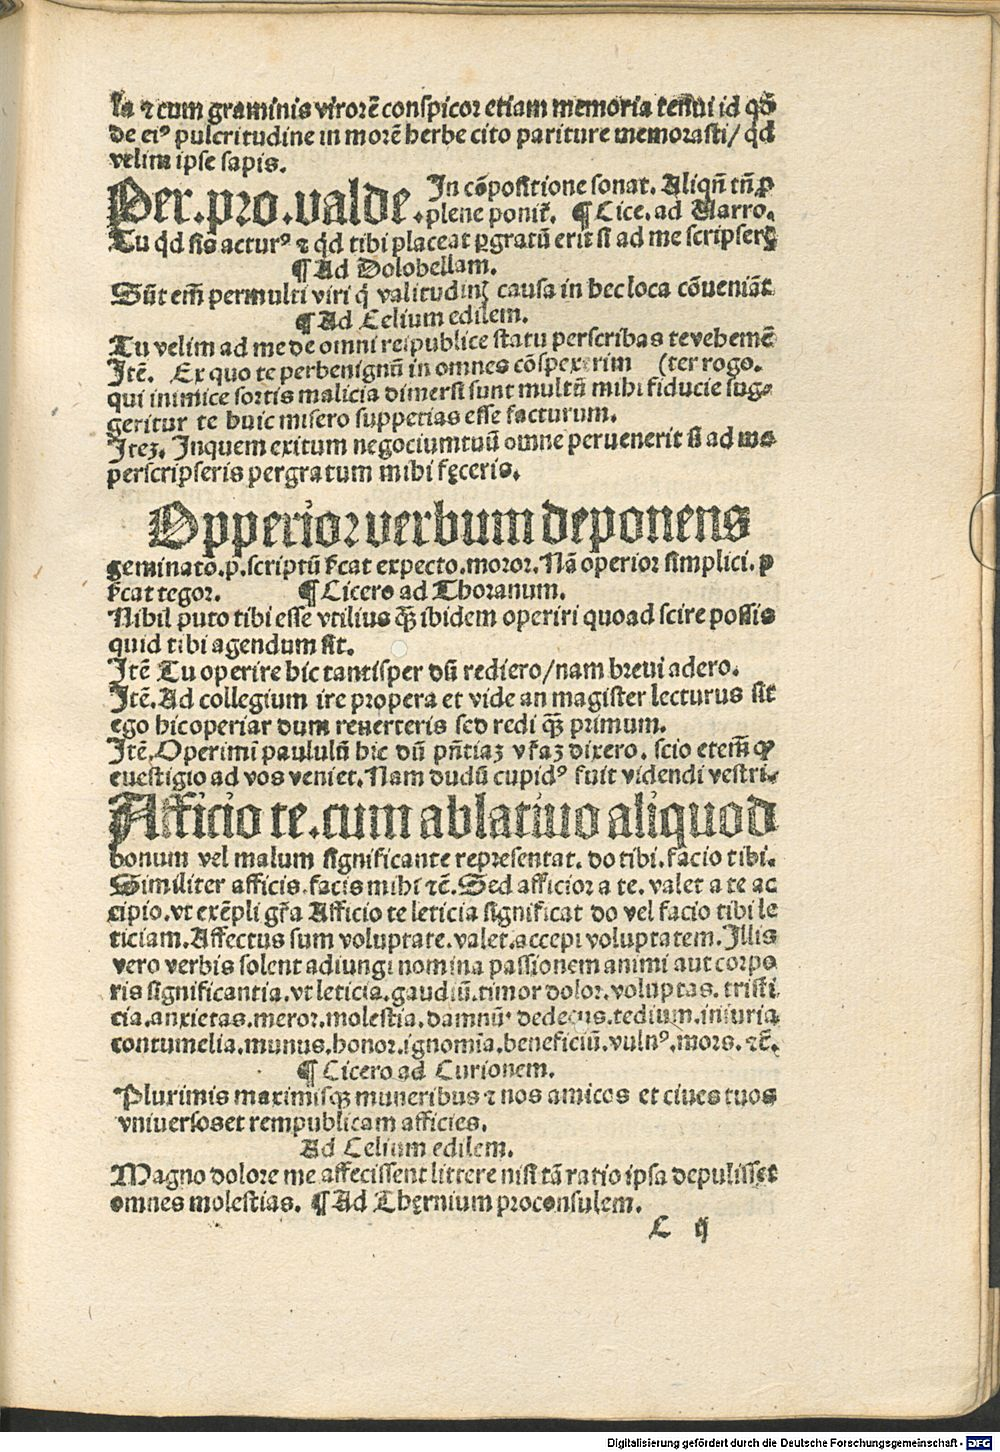 la ⁊ cum graminis virorē conspicor etiam memoria tenui id qđ
de eiꝰ pulcritudine in morē herbe cito pariture memorasti/ qđ
velim ipse sapis.
Per.pro.valde. In cōpositione sonat. Aliqñ tñ ꝓ
plene poniť. ¶ Cice. ad Varro.
Tu qđ sis acturꝰ ⁊ qđ tibi placeat ꝑgratū erit si ad me scripseris
¶ Ad Dolobellam.
Sūt em̄ permulti viri q̇ valitudinꝭ causa in hec loca cōueniāt
¶ Ad Celium edilem.
Tu velim ad me de omni reipublice statu perscribas te vehemē
Itē. Ex quo te perbenignū in omnes cōspexerim (ter rogo.
qui inimice sortis malicia dimersi sunt multū mihi fiducie sug-
geritur te huic misero suppetias esse facturum.
Iteꝫ. Inquem exitum negocium tuū omne peruenerit si ad me
perscripseris pergratum mihi fęceris.
Opperior verbum deponens
geminato.p.scriptū ſ̄cat expecto.moror.Nā operior simplici.p
ſ̄cat tegor. ¶ Cicero ad Thoranum.
Nihil puto tibi esse vtilius q̄ꝫ ibidem operiri quoad scire possis
quid tibi agendum sit.
Itē Tu operire hic tantisper dū rediero/nam breui adero.
Itē.Ad collegium ire propera et vide an magister lecturus sit
ego hic operiar dum reuerteris sed redi q̄ꝫ primum.
Itē.Operimī paululū hic dū pn̄tiaꝫ vr̄aꝫ dixero. scio etem̄ ꝙ
euestigio ad vos veniet.Nam dudū cupidꝰ fuit videndi vestri.
Afficio te.cum ablatiuo aliquod
bonum vel malum significante representat. do tibi.facio tibi.
Similiter afficis.facis mihi ⁊c̄.Sed afficior a te. valet a te ac
cipio.vt exēpli gr̄a Afficio te leticia significat do vel facio tibi le
ticiam.Affectus sum voluptate.valet.accepi voluptatem.Illis
vero verbis solent adiungi nomina passionem animi aut corpo
ris significantia.vt leticia.gaudiū.timor dolor.voluptas. tristi
cia.anxietas.meror.molestia.damnū. dedecus.tedium.iniuria
contumelia.munus.honor.ignomia.beneficiū.vulnꝰ.mors.⁊c̄.
¶ Cicero ad Curionem.
Plurimis maximisqꝫ muneribus ⁊ nos amicos et ciues tuos
vniuersos et rempublicam afficies.
Ad Celium edilem.
Magno dolore me affecissent littere nisi tā ratio ipsa depulisset
omnes molestias. ¶ Ad Thęrnium proconsulem.
C ij
Digitalisierung gefördert durch die Deutsche Forschungsgemeinschaft - DFG